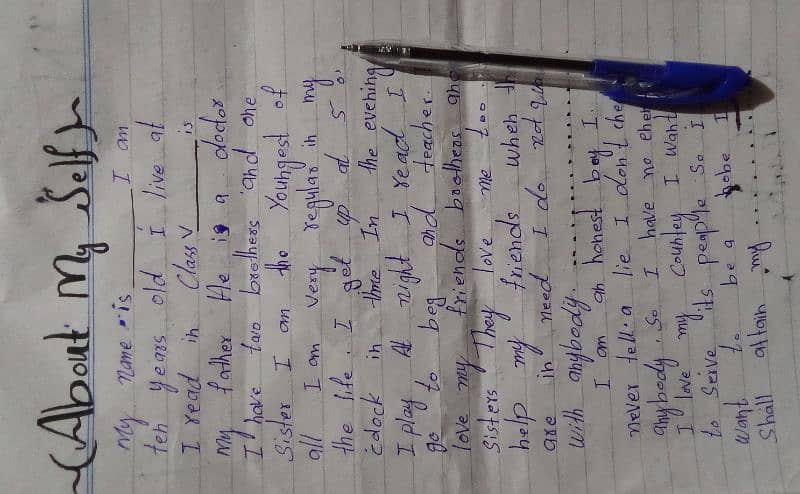 ~(About My Self)~
My name is ______ I am
ten years old I live at
I read in Class V ______ is
My father He is a doctor
I have two brothers and one
Sister I am the Youngest of
all I am very regular in my
the life. I get up at 5 o,
cdock in time In the evening
I play At night I read I
go to beg and teacher.
love my friends brothers and
Sisters They love me too.
help my friends when th
are in need I do not qua
With anybody..........
I am an honest boy I
never tell. a lie I don't che
anybody. So I have no ene
I love my Country I want
to Serve its peaple So I
Want to be a hobe I
Shall attain my ........